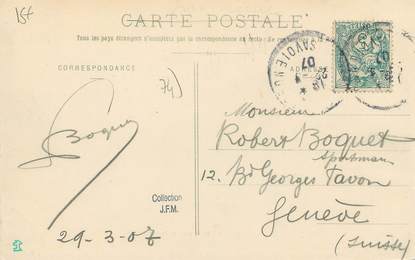 15f
CARTE POSTALE
Tous les pays étrangers n'acceptent pas la correspondance au recto
CORRESPONDANCE
74)
SAVOIE
07
Monsieur
Boquet
Robert Boquet
Sportman
12. Bd Georges Favon
Collection
J.F.M.
Genève
29-3-07
(Suisse)